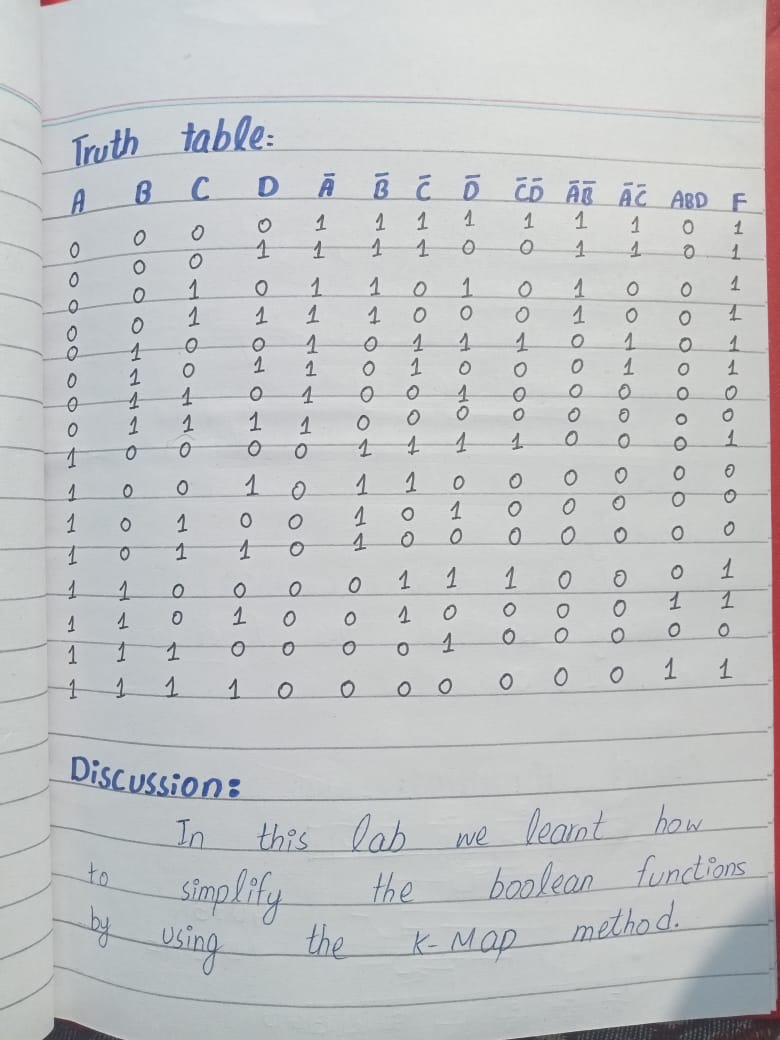 Truth table:
A B C D Ā B̄ C̄ D̄ C̄D̄ ĀB̄ ĀC̄ ABD F
0 0 0 0 1 1 1 1 1 1 1 0 1
0 0 0 1 1 1 1 0 0 1 1 0 1
0 0 1 0 1 1 0 1 0 1 0 0 1
0 0 1 1 1 1 0 0 0 1 0 0 1
0 1 0 0 1 0 1 1 1 0 1 0 1
0 1 0 1 1 0 1 0 0 0 1 0 1
0 1 1 0 1 0 0 1 0 0 0 0 0
0 1 1 1 1 0 0 0 0 0 0 0 0
1 0 0 0 0 1 1 1 1 0 0 0 1
1 0 0 1 0 1 1 0 0 0 0 0 0
1 0 1 0 0 1 0 1 0 0 0 0 0
1 0 1 1 0 1 0 0 0 0 0 0 0
1 1 0 0 0 0 1 1 1 0 0 0 1
1 1 0 1 0 0 1 0 0 0 0 1 1
1 1 1 0 0 0 0 1 0 0 0 0 0
1 1 1 1 0 0 0 0 0 0 0 1 1
Discussion:
In this lab we learnt how
to simplify the boolean functions
by using the K-Map method.